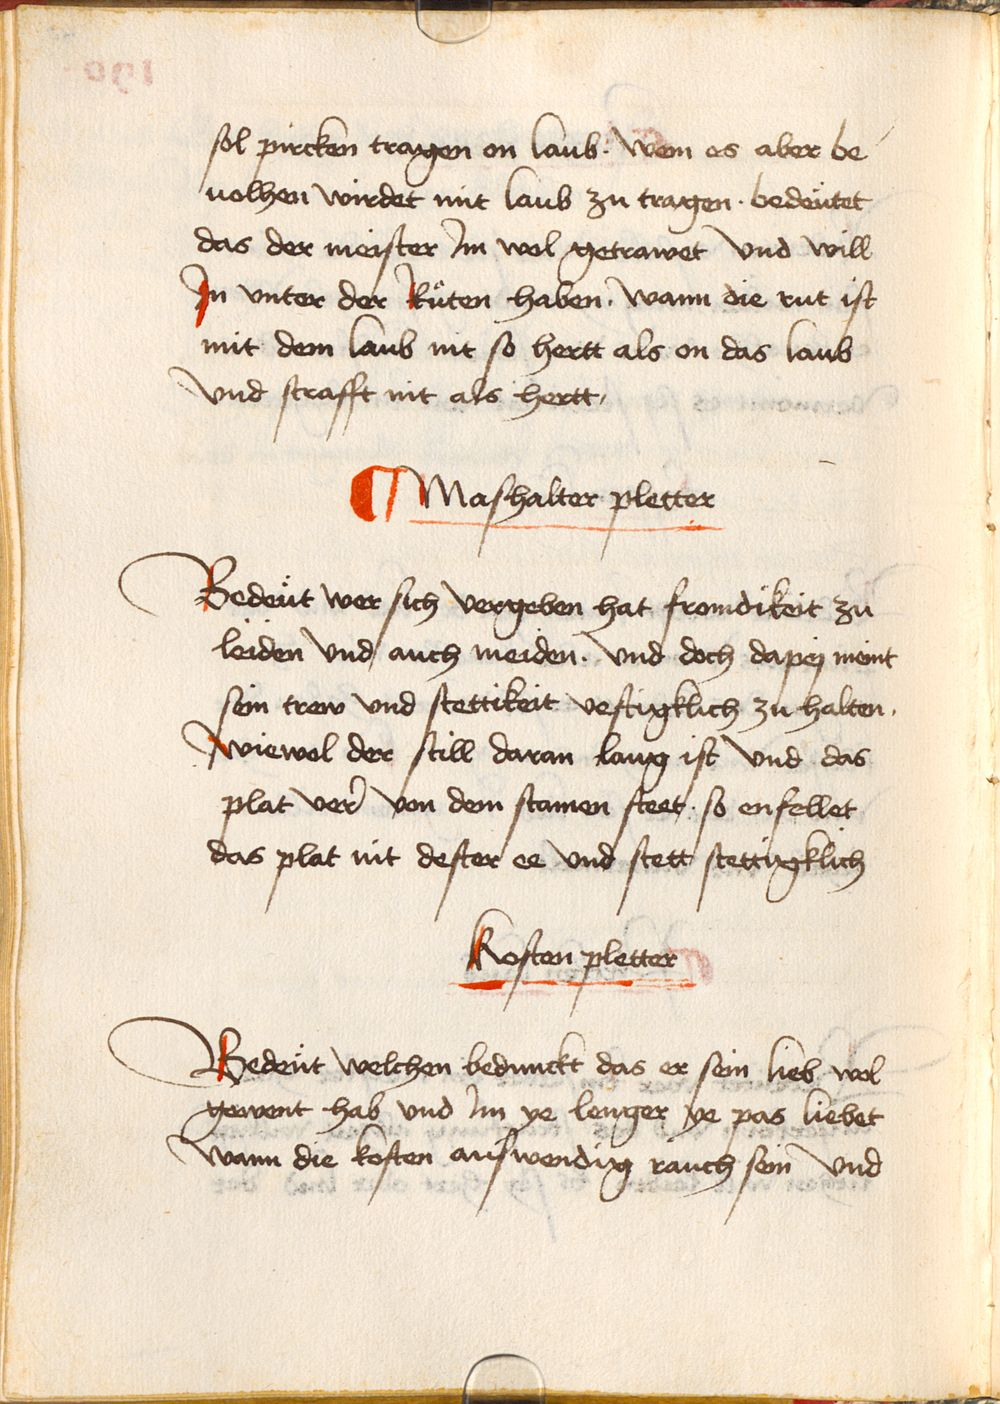 sol pircken tragen on laub. Wem es aber be
uolhen wirdet mit laub zu tragen. bedeütet
das der meister Im wol getrawet Vnd will
In vnter der Rüten haben. Wann die rut ist
mit dem laub nit so hertt als on das laub
Vnd strafft nit als hertt.
¶ Mashalter pletter
Bedeüt wer sich vergeben hat fromdikeit zu
leiden Vnd auch meiden. Vnd doch dapej meint
sein trew Vnd stettikeit vestigklich zu halten.
Wiewol der still daran lang ist Vnd das
plat verr von dem stamen steet. so enfellet
das plat nit dester ee Vnd stett stettigklich
Kosten pletter
Bedeüt Welchen bedunckt das er sein lieb wol
gewent hab Vnd Im ye lenger ye pas liebet
Wann die kosten auswendig rauch sein Vnd